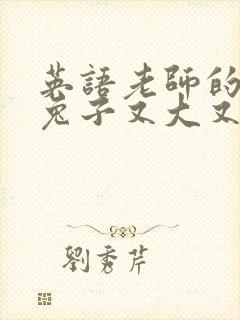 英語老師的
兔子又大又
劉秀芹